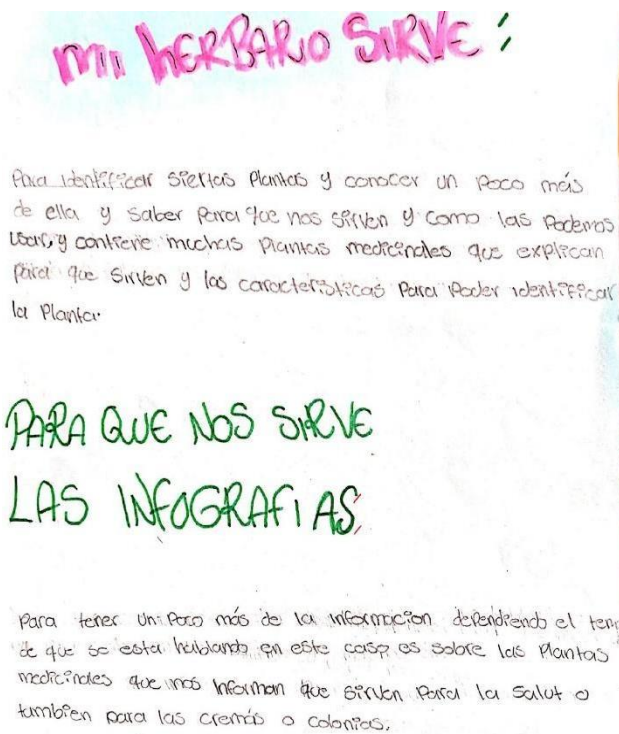 mi hERBARIO SIRVE:
Para identificar siertas Plantas y conocer un Poco más
de ella y saber para que nos sirven y como las Podemos
usar, y contiene muchas Plantas medicinales que explican
para que sirven y las características Para Poder identificar
la Planta.
PARA QUE NOS SIRVE
LAS INFOGRAFIAS
Para tener un Poco más de la informacion dependiendo el tem
de que se esta hablando en este caso es sobre las Plantas
medicinales que nos informan que sirven Para la salut o
tambien para las cremás o colonias.